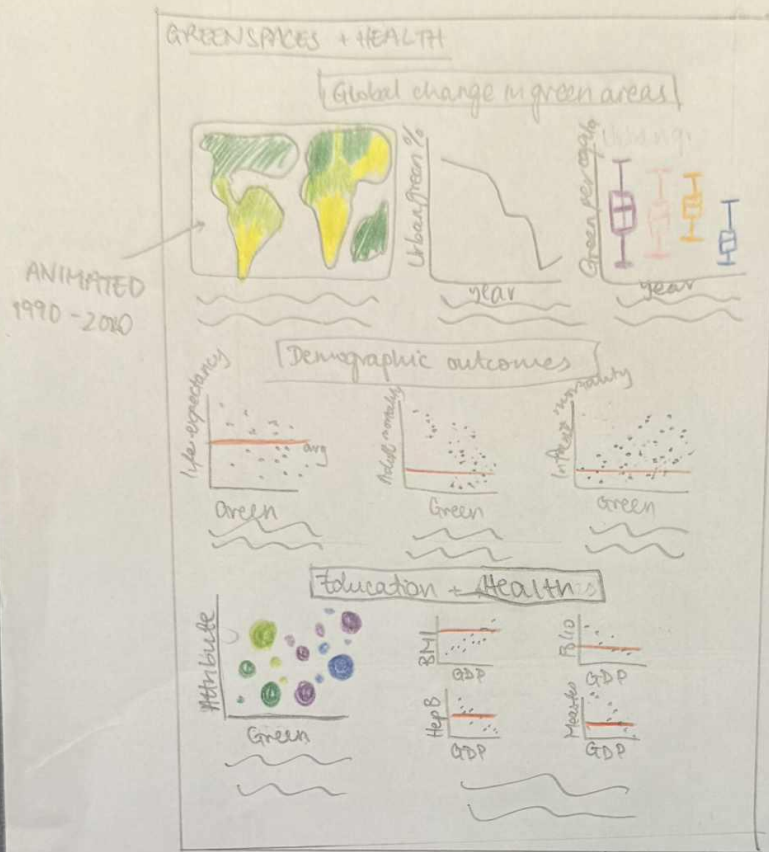 GREENSPACES + HEALTH
Global change in green areas
Urban green %
year
Green per
year
ANIMATED
1990 - 2020
Demographic outcomes
life expectancy
avg
Green
Adult mortality
Green
Infant mortality
Green
Education + Health
Attribute
Green
BMI
GDP
Polio
GDP
HepB
GDP
Measles
GDP